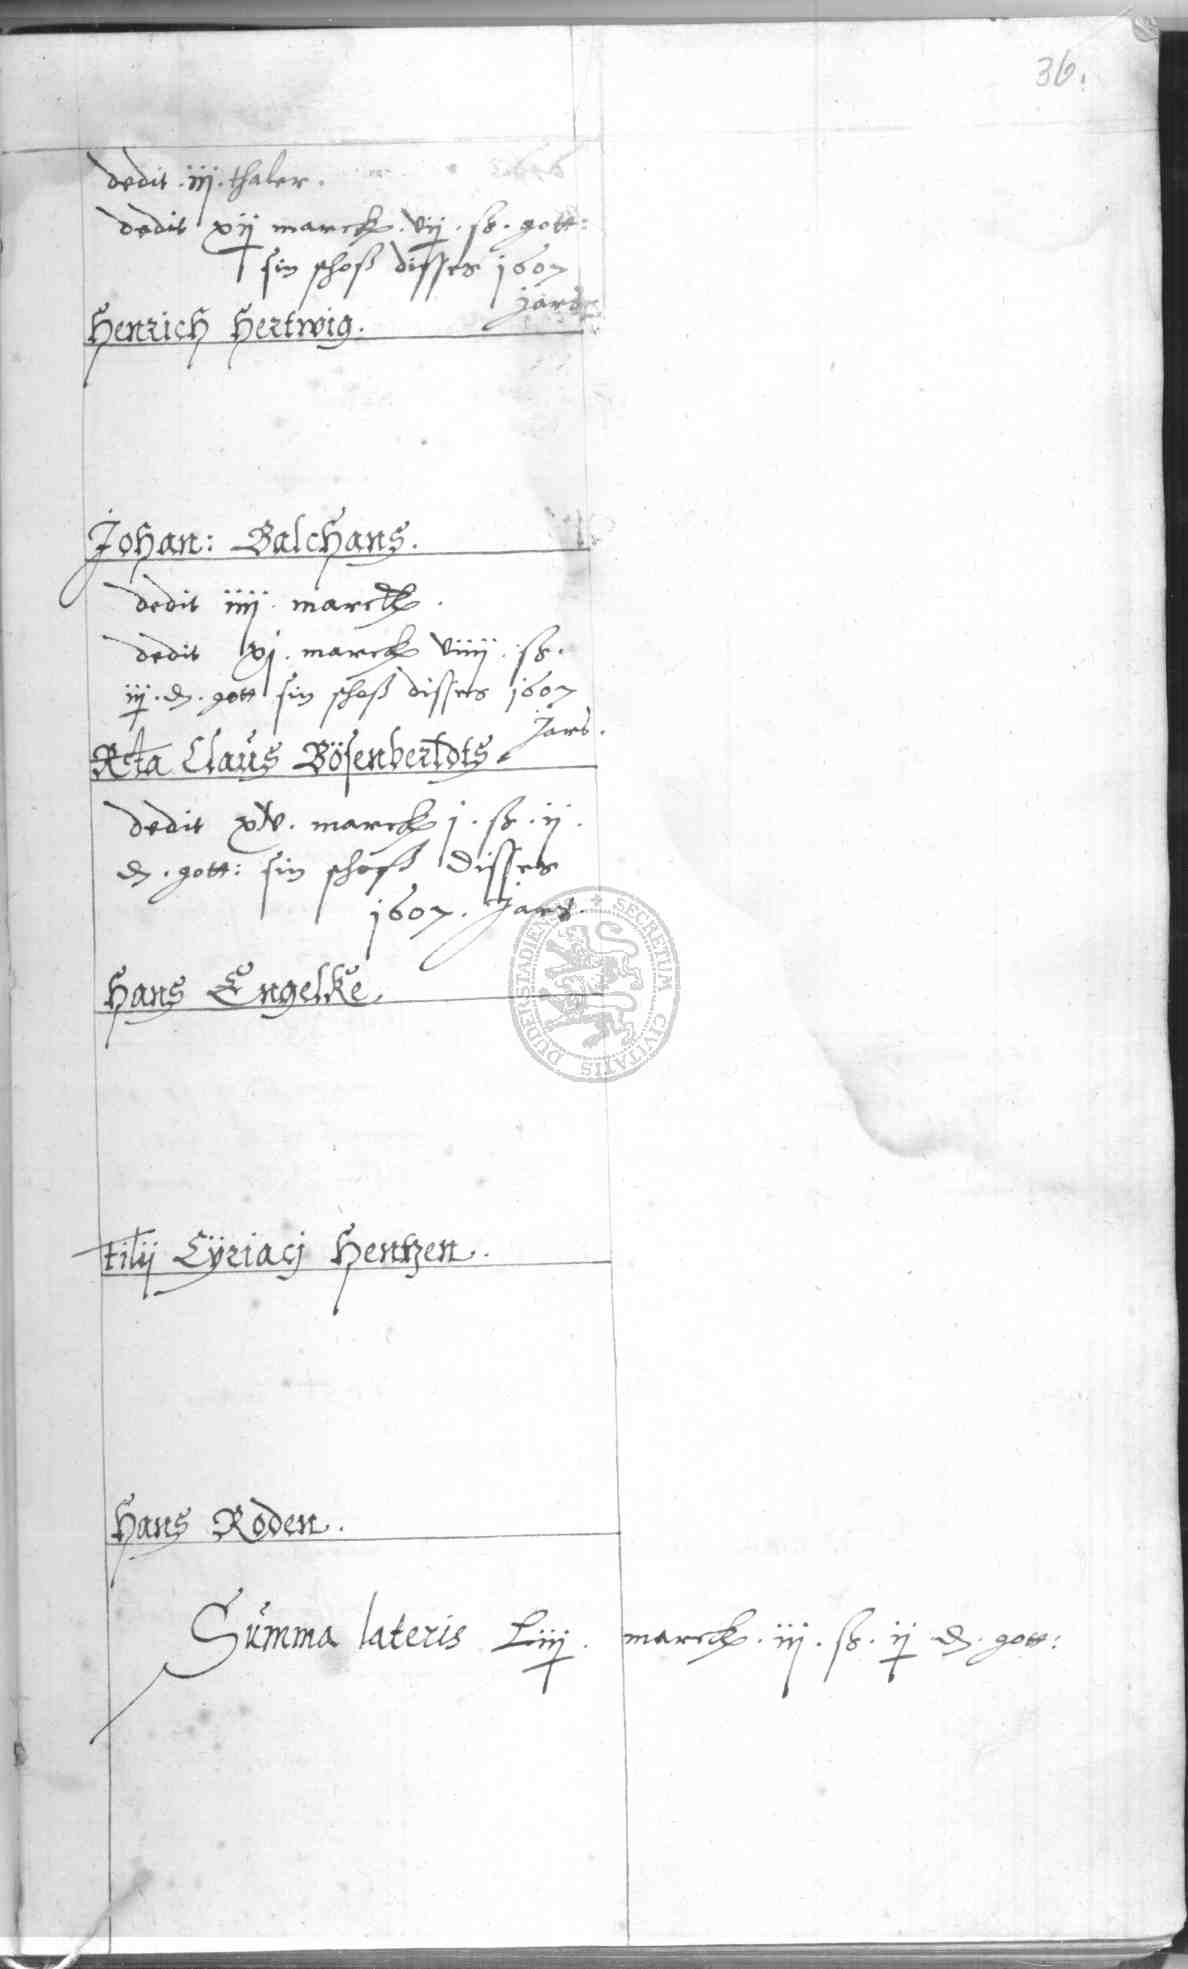 36.
dedit . iij . thaler .
dedit xij marck . vij . ß . gott :
sin schoß disses 1607
Jars
Henrich Hertwig .
Johan : Balchans .
dedit iiij . marck .
dedit xj . marck viiij . ß .
iij . d . gott sin schoß disses 1607
Jars .
Rta Claus Bösenbertdts .
dedit xiv . marck j . ß . ij .
d . gott : sin schoß disses
1607 . Jars .
Hans Engelke .
filij Cÿriacj Hentzen .
Hans Roden .
Summa lateris Liij . marck . iij . ß . ij d . gott :
SECRETUM CIVITATIS DUDERSTADIENSIS